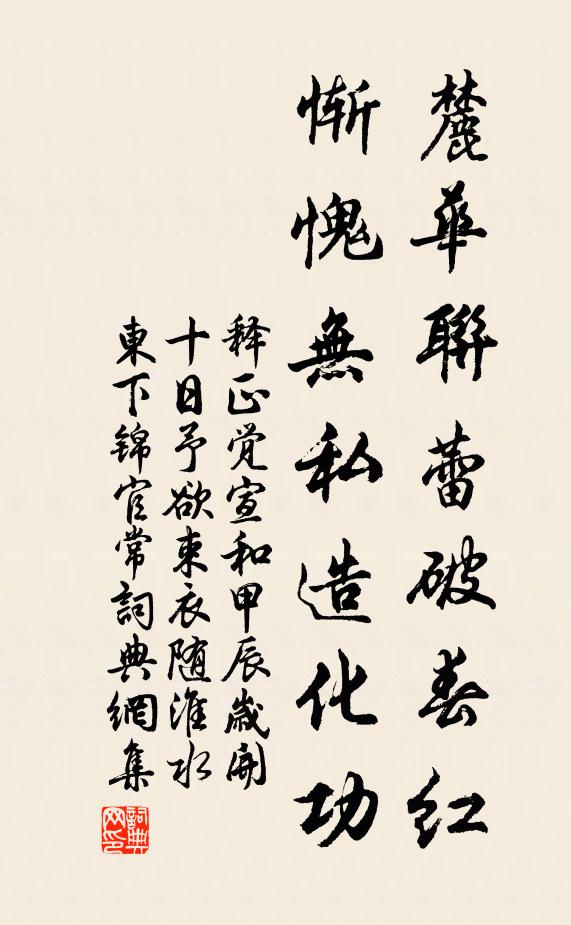 麓華聯蕾破春紅
慚愧無私造化功
释正覚宣和甲辰歳開
十日予欲束衣随淮水
東下锦官常詞典網集
詞典网印